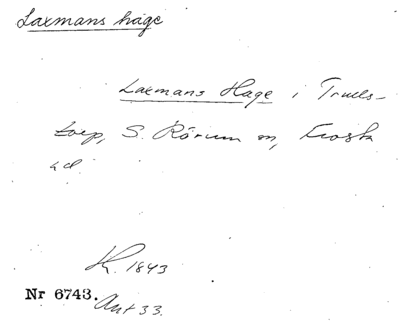 Laxmans hage
Laxmans Hage i Truls-
torp, S. Rörum sn, Frosta
hd.
K. 1843
Nr 6743.
Ant 33.